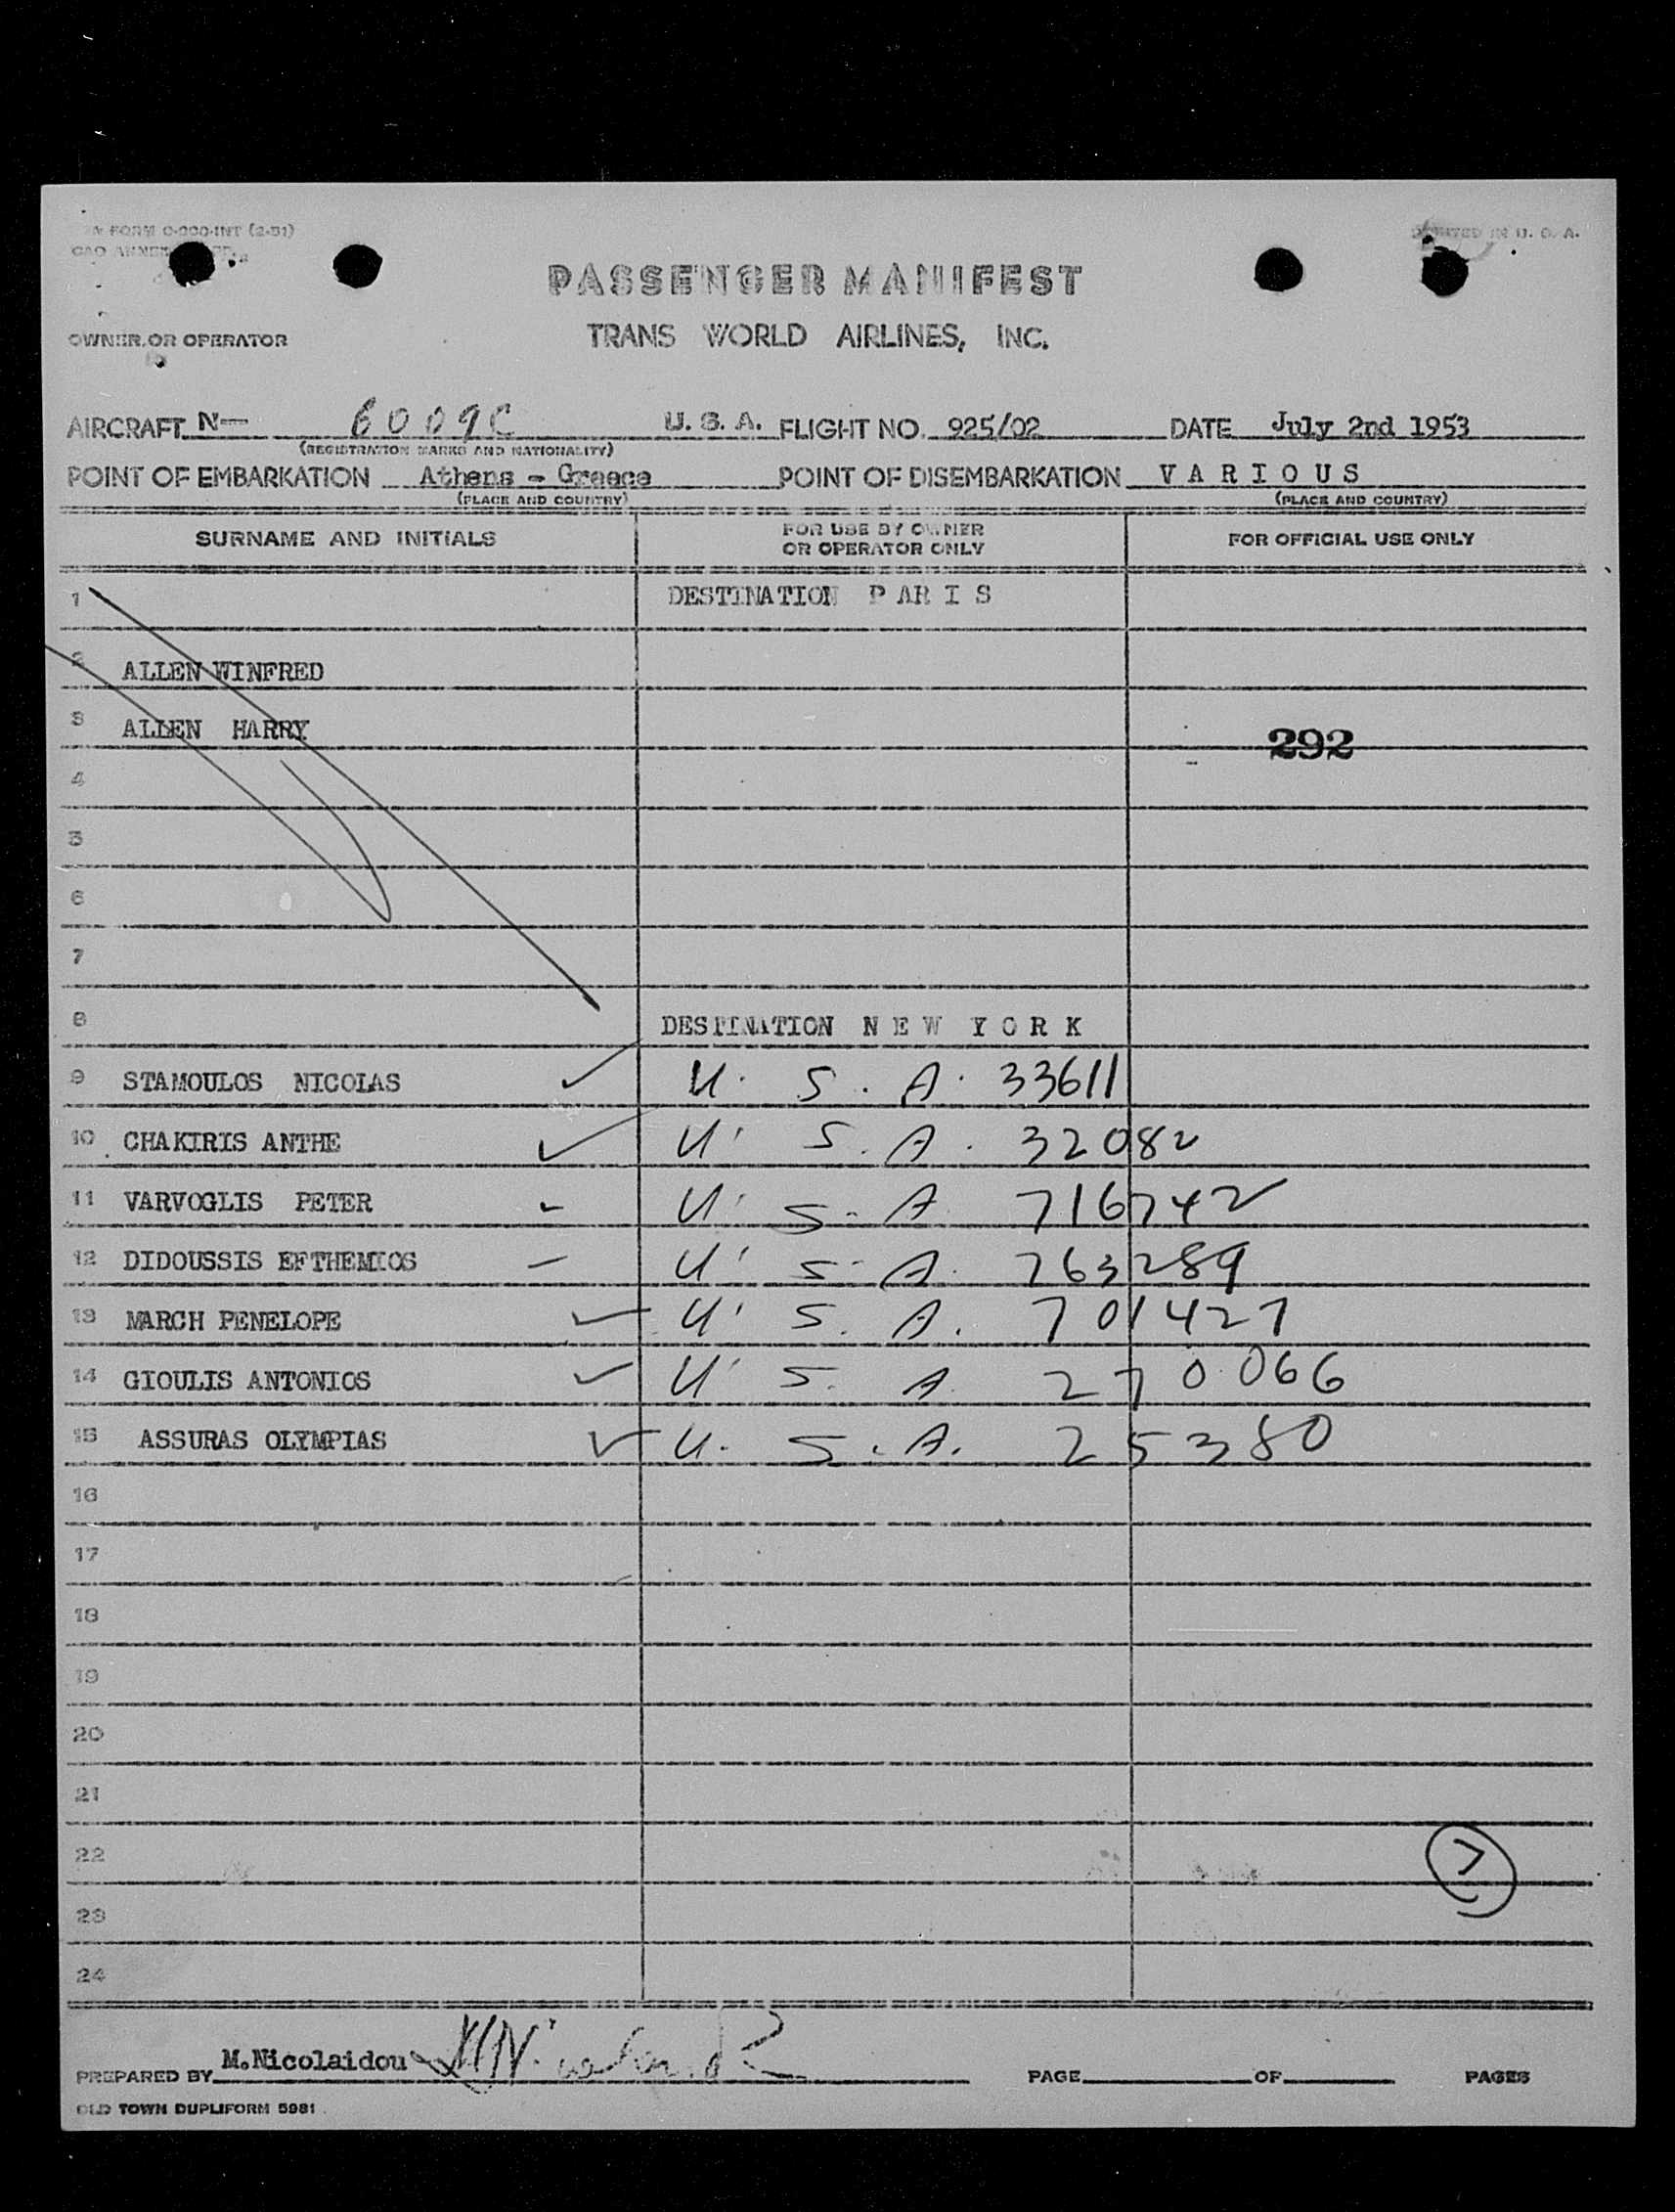 FORM O-000-INT (2-51)
PRINTED IN U. S. A.
PASSENGER MANIFEST
OWNER OR OPERATOR TRANS WORLD AIRLINES, INC.
AIRCRAFT N— 6009C U. S. A. FLIGHT NO. 925/02 DATE July 2nd 1953
(REGISTRATION MARKS AND NATIONALITY)
POINT OF EMBARKATION Athens - Greece POINT OF DISEMBARKATION V A R I O U S
(PLACE AND COUNTRY) (PLACE AND COUNTRY)
SURNAME AND INITIALS FOR USE BY OWNER OR OPERATOR ONLY FOR OFFICIAL USE ONLY
1 DESTINATION P AR I S
2 ALLEN WINFRED
3 ALLEN HARRY 292
4
5
6
7
8 DESTINATION N E W Y O R K
9 STAMOULOS NICOLAS U. S. A. 33611
10 CHAKIRIS ANTHE U. S. A. 32082
11 VARVOGLIS PETER U. S. A 716742
12 DIDOUSSIS EFTHEMIOS U. S. A. 763289
13 MARCH PENELOPE U. S. A. 701427
14 GIOULIS ANTONIOS U. S. A. 270066
15 ASSURAS OLYMPIAS U. S. A. 25380
16
17
18
19
20
21
22 7
23
24
PREPARED BY M.Nicolaidou PAGE OF PAGES
OLD TOWN DUPLIFORM 5981